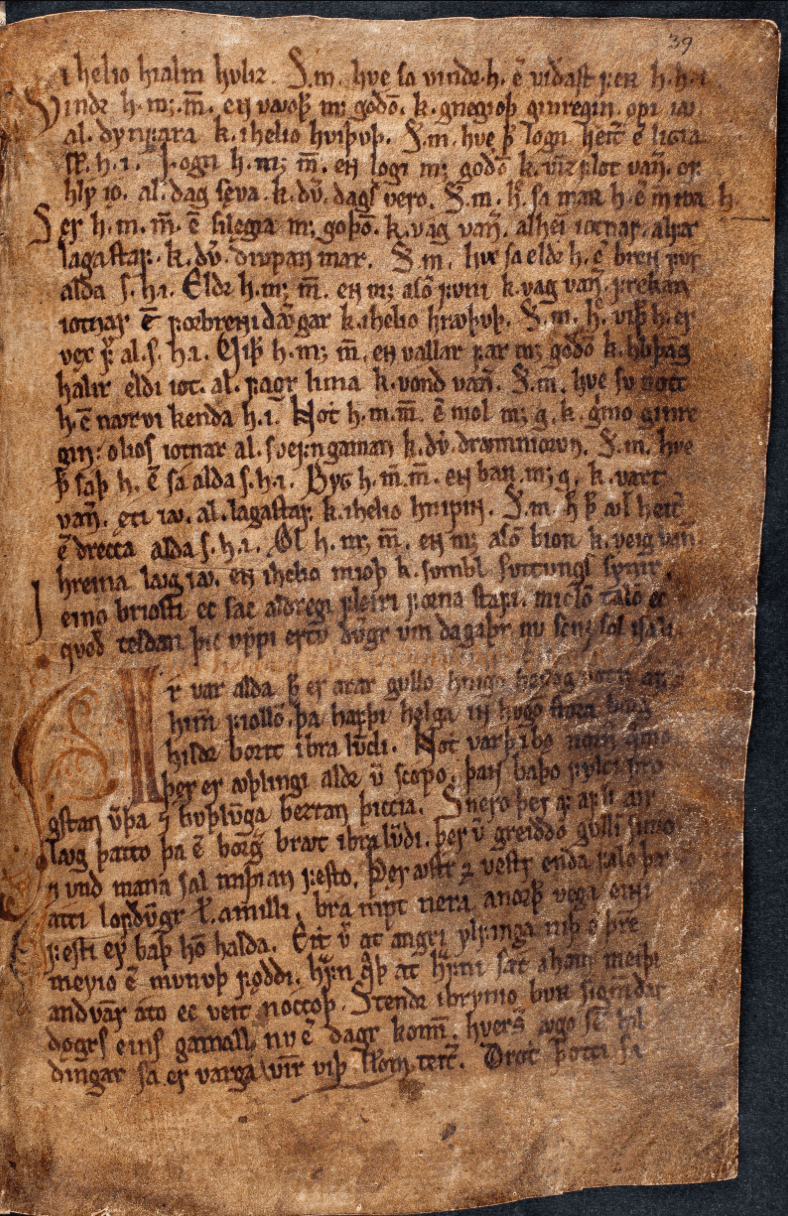 39
i helio hialm hvliz. S. m. hve sa vindr. h. ē viðast ferr h. h. i.
Vindr h. m; m̄. en vavoþ m; godō. k. gnegioþ ginregin. opi iw.
al. dynfara k. i helio hviþvþ. S. m. hve þ logn heit̄ ē ligia
sk̄. h. i. Logn h. m; m̄. en logi m; godō k. vīz flot van̄. of
hly io. al. dag seva. k. dv̄. dags vero. S. m. h̄. sa marr h. ē m roa h.
Ser h. m. m̄. ē silegia m; goþō. k. vag van̄. alhei iotnar. alfar
lagastaf. k. dv̄. divpan mar. S. m. hve sa eldr h. ē brenr fyr
alda s. h. i. Eldr h. m; m̄. en m; asō funi k. vag van̄. frekan
iotnar ē forbrenni dvgar k. i helio hrwþvþ. S. m. h. viþ h. er
vex f̄. al. s. h. i. Viþ h. m; m̄. en vallar far m; godō k. hliþþag
halir eldi iot. al. fagr lima k. vond van̄. S. m. hve sv nott
h. ē navrvi kenda h. i. Not h. m. m̄. ē niol m; g. k. gmo ginre
gin: olios iotnar al. svefngaman k. dv̄. dravmniorvn. S. m. hve
þ saþ h. ē sa alda s. h. i. Byg h. m̄. m̄. en barr m; g. k. vaxt
van̄. eti iw. al. lagastaf. k. i helio hnipin. S. m h̄ þ wl heit̄
ē drecca alda s. h. i. Ol h. m; m̄. en m; asō biorr k. veig van̄
hreina lwg iw. en i helio mioþ k. svmbl svttvngs synir.
I eino briosti ec sac aldregi fleiri forna stafi. miclō talō ec
qvoð teldan þic vppi ertv dv̄gr vm dagaþr nv scin; sol i sali
Ar var alda þ er arar gvllo hnigo heilog votn af
himn fiollō. þa hafþi helga in hvgō stora borg
hildr borit i bra lvndi. Not varþ i bǫ nornir qvomo
þer er wþlingi aldr v̄ scopo. þann baþo fylci frę
gstan v̄þa ⁊ bvþlvnga beztan þiccia. Snero þer af afli avr
lwg þatto þa ē borḡ bravt i bra lvndi. þer v̄ greiddo gvllin simo
n vnd mana sal miþian festo. Þer wstr ⁊ vestr enda falo þar
atti lofdv̄gr l̄. a milli. bra nipt nera a norþ vega einni
festi ey baþ hō halda. Eit v̄ at angri ylfinga niþ ⁊ þre
meyio ē mvnvþ føddi. hrafn q̄þ at hrafni sat a hā meiþi
andvan̄ áto ec veit noccoþ. Stendr i brynio bvr sigm̄dar
dogrs eins gamall nv ē dagr komin. hvers̄ wgo sē hil
dingar sa er varga vin̄r viþ sk̄lom teit̄. Drot þotti sa